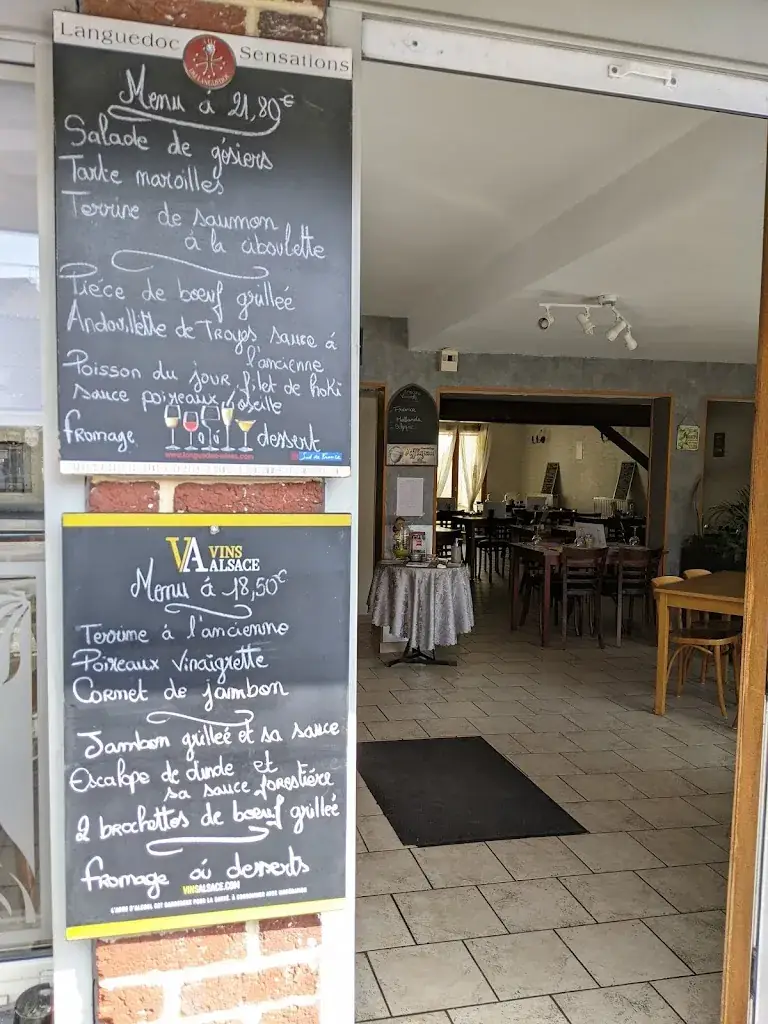 Languedoc Sensations
Menu à 21,80€
Salade de gésiers
Tarte maroilles
Terrine de saumon
à la ciboulette
Pièce de boeuf grilleé
Andouillette de Troyes sauce à
l'ancienne
Poisson du jour, filet de hoki
sauce poireaux, oseille
fromage dessert
www.languedoc-wines.com
Sud de France
VA VINS
ALSACE
Menu à 18,50€
Terrine à l'ancienne
Poireaux vinaigrette
Cornet de jambon
Jambon grilleé et sa sauce
Escalope de dinde et
sa sauce forestière
2 brochettes de boeuf grilleé
fromage où desserts
VINSALSACE.COM
L'ABUS D'ALCOOL EST DANGEREUX POUR LA SANTÉ. À CONSOMMER AVEC MODÉRATION